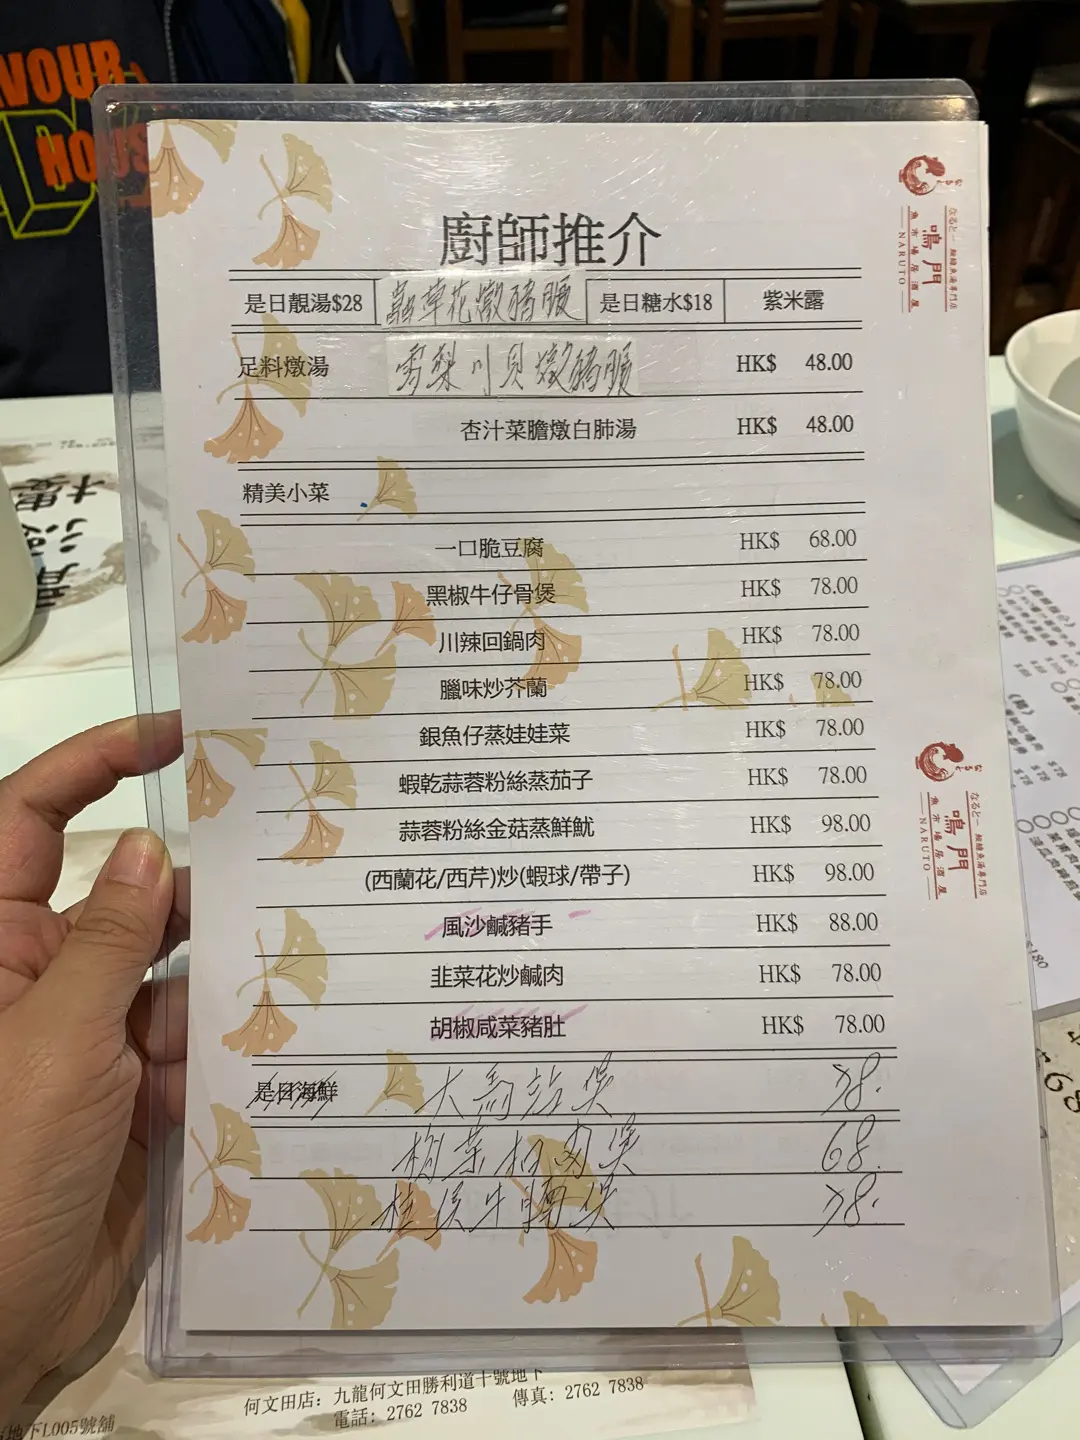 AVOUR
HOUS
廚師推介
是日靚湯$28 蟲草花燉豬𦟌 是日糖水$18 紫米露
足料燉湯 雪梨川貝燉豬𦟌 HK$ 48.00
杏汁菜膽燉白肺湯 HK$ 48.00
精美小菜
一口脆豆腐 HK$ 68.00
黑椒牛仔骨煲 HK$ 78.00
川辣回鍋肉 HK$ 78.00
臘味炒芥蘭 HK$ 78.00
銀魚仔蒸娃娃菜 HK$ 78.00
蝦乾蒜蓉粉絲蒸茄子 HK$ 78.00
蒜蓉粉絲金菇蒸鮮魷 HK$ 98.00
(西蘭花/西芹)炒(蝦球/帶子) HK$ 98.00
風沙鹹豬手 HK$ 88.00
韭菜花炒鹹肉 HK$ 78.00
胡椒咸菜豬肚 HK$ 78.00
是日海鮮 大馬站煲 78.
68.
柱侯牛腩煲 78.
なると一 鮨鱔魚湯專門店
鳴門
魚市場居酒屋
NARUTO
鳴門
魚市場居酒屋
NARUTO
何文田店: 九龍何文田勝利道十號地下
電話: 2762 7838 傳真: 2762 7838
地下L005號舖